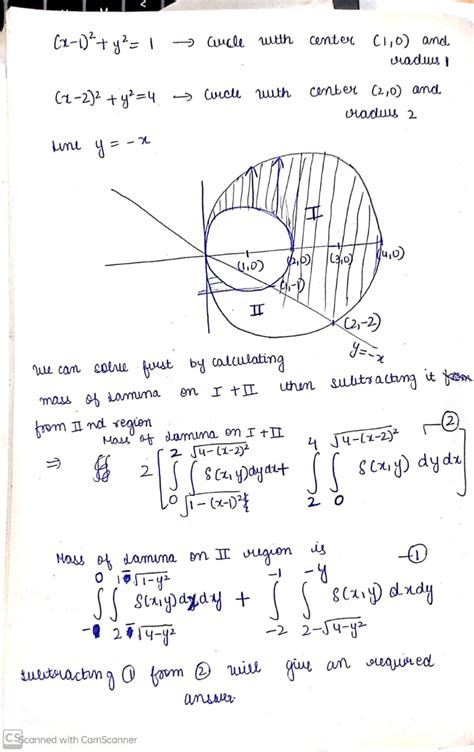 (x-1)² + y² = 1 → circle with center (1,0) and
radius 1
(x-2)² + y² = 4 → circle with center (2,0) and
radius 2
Line y = -x
I
(1,0) (2,0) (3,0) (4,0)
(1,-1)
II
(2,-2)
y=-x
we can solve first by calculating
mass of lamina on I + II then subtracting it from
from II nd region
Mass of lamina on I + II
⇒ 2 [ ∫₀² ∫_{√1-(x-1)²}^{√4-(x-2)²} S(x,y) dy dx + ∫₂⁴ ∫₀^{√4-(x-2)²} S(x,y) dy dx ] —②
Mass of lamina on II region is —①
∫₋₁⁰ ∫_{2-√4-y²}^{1-√1-y²} S(x,y) dx dy + ∫₋₂⁻¹ ∫_{2-√4-y²}^{-y} S(x,y) dx dy
subtracting ① from ② will give an required
answer
CS Scanned with CamScanner